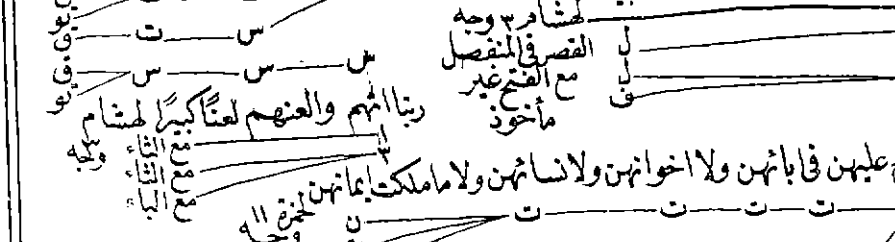 لهشام ٣ وجه
س ت ق
القصر في المنفصل ل
س س س ق
مع الفتح غير ل
مأخوذ ف
ربنا اتهم والعنهم لعنًا كبيرًا لهشام
٣ وجه
ا مع الثاء
٣ مع الثاء
مع الباء
عليهن في ابائهن ولا اخوانهن ولا نسائهن ولا ما ملكت ايمانهن
لحمزة ١١ وجه
ت ت ت ت ن